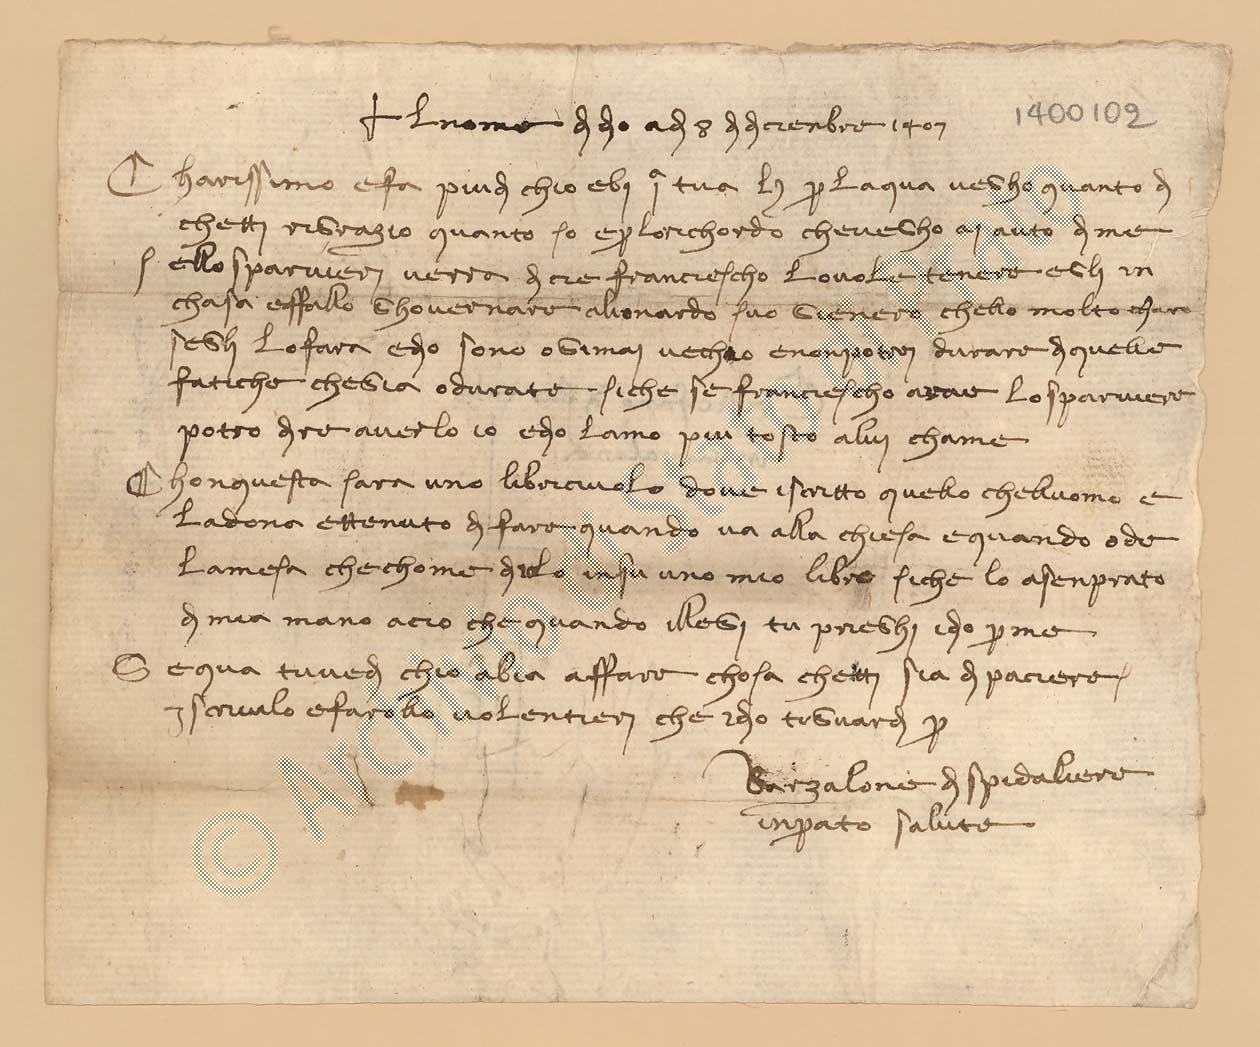 + Al nome di dio a dì 8 di dicienbre 1407
1400102
Charissimo e fa piu dì chio ebi 1ª tua per la qua vegho quanto di
chetti risrazio quanto so e per lo richordo che vegho ai auto di me
Sello sparvieri verra di cie franciescho lo vole tenere egli in
chasa effallo ghovernare a lionardo suo gienero chello molto charo
segli lo fara e dio sono ogimai vechio e non potrei durare di quelle
fatiche che gia o durate siche se francescho arae lo sparviere
potro dire averlo io e dio lamo piu tosto a lui chame
Chon questa sara uno libriciuolo dove iscritto quello chelluomo e
la dona ettenuto di fare quando va alla chiesa e quando ode
la mesa che chome insu uno mio libro siche lo asenprato
di mia mano acio che quando illegi tu prieghi idio per me
Se qua tu vedi chio abia affare chosa chetti sia di paciere
iscrivilo e farollo volentieri che idio ti guardi per
Barzalone di spidaliere
in prato salute
© Archivio di Stato di Prato